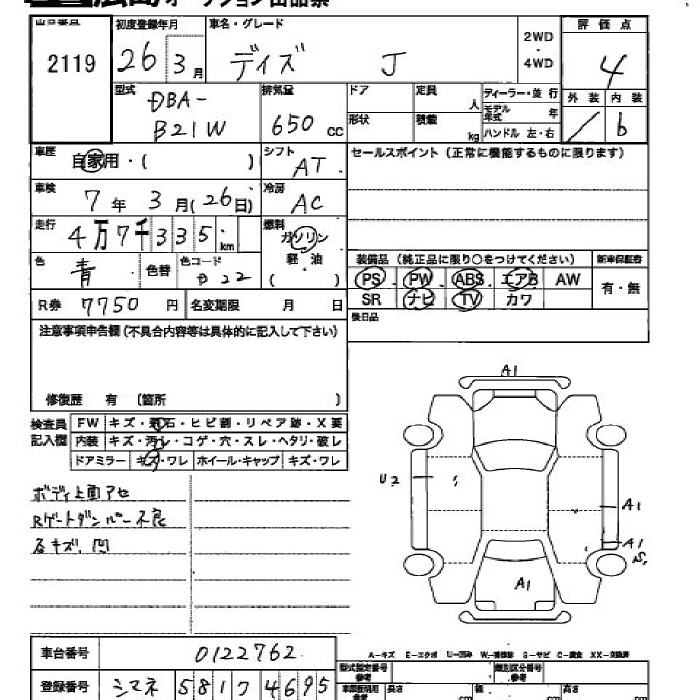 広島オークション出品票
出品番号 初度登録年月 車名・グレード 2WD・4WD 評価点
2119 26 3月 デイズ J 4
型式 DBA-B21W 排気量 650cc ドア 定員 人 ディーラー・並行 外装 内装
形状 積載 kg モデル年式 年 ハンドル 左・右 b
車歴 自家用・( ) シフト AT セールスポイント(正常に機能するものに限ります)
車検 7年3月(26日) 冷房 AC
走行 4万7千335km 燃料 ガソリン 軽・油 ( )
色 青 色替 色コード B22 装備品(純正品に限り○をつけてください) 新車保証書
PS PW ABS エアB AW 有・無
R券 7750円 名変期限 月 日 SR ナビ TV カワ
注意事項申告欄(不具合内容等は具体的に記入して下さい) 後日品
修復歴 有 (箇所 )
検査員記入欄 FW キズ・飛石・ヒビ割・リペア跡・X要
内装 キズ・汚レ・コゲ・穴・スレ・ヘタリ・破レ
ドアミラー キズ・ワレ ホイール・キャップ キズ・ワレ
A1
U2
A1
A1
A1
ボディ上面アセ
Rゲートダンパー不良
各キズ、凹
車台番号 0122762
A-キズ E-エクボ U-凹み W-補修跡 S-サビ C-腐食 XX-交換済
型式指定番号 参考 類別区分番号 参考
登録番号 シマネ 581ワ4695 車検証明用 参考 長さ cm 幅 cm 高さ cm